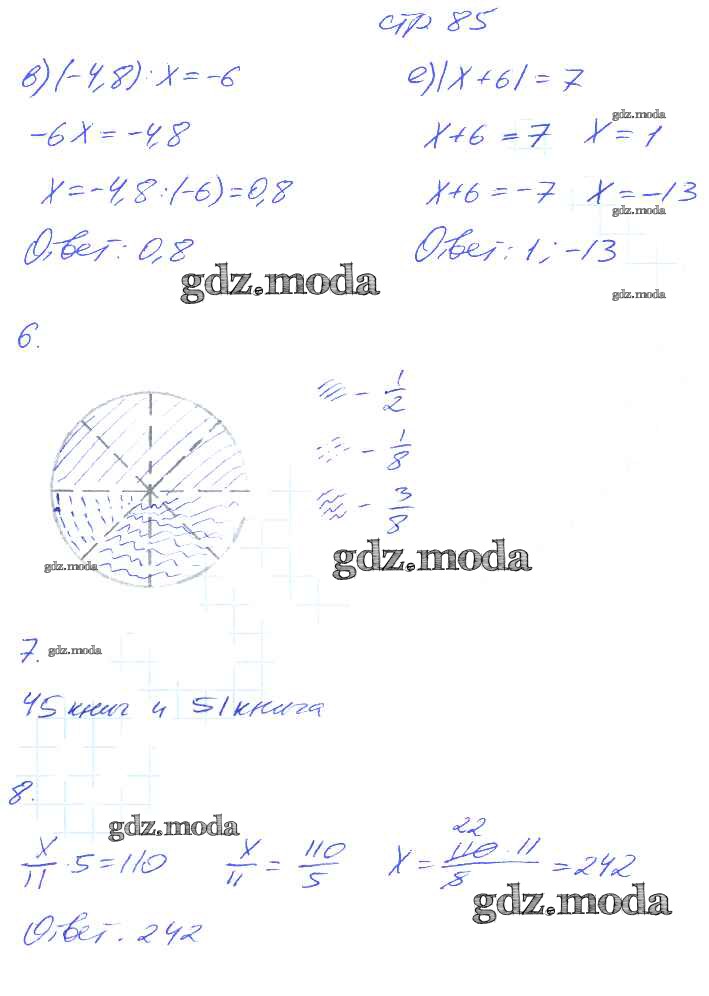 стр 85
в) (-4,8) : x = -6
-6x = -4,8
x = -4,8 : (-6) = 0,8
Ответ: 0,8
е) |x + 6| = 7
gdz.moda
x+6 = 7 x = 1
x+6 = -7 x = -13
gdz.moda
Ответ: 1; -13
gdz.moda
gdz.moda
6.
- 1/2
- 1/8
- 3/8
gdz.moda
gdz.moda
7. gdz.moda
45 книг и 51 книга
8.
gdz.moda
x/11 · 5 = 110 x/11 = 110/5 x = 22 110 · 11 / 5 = 242
gdz.moda
Ответ. 242